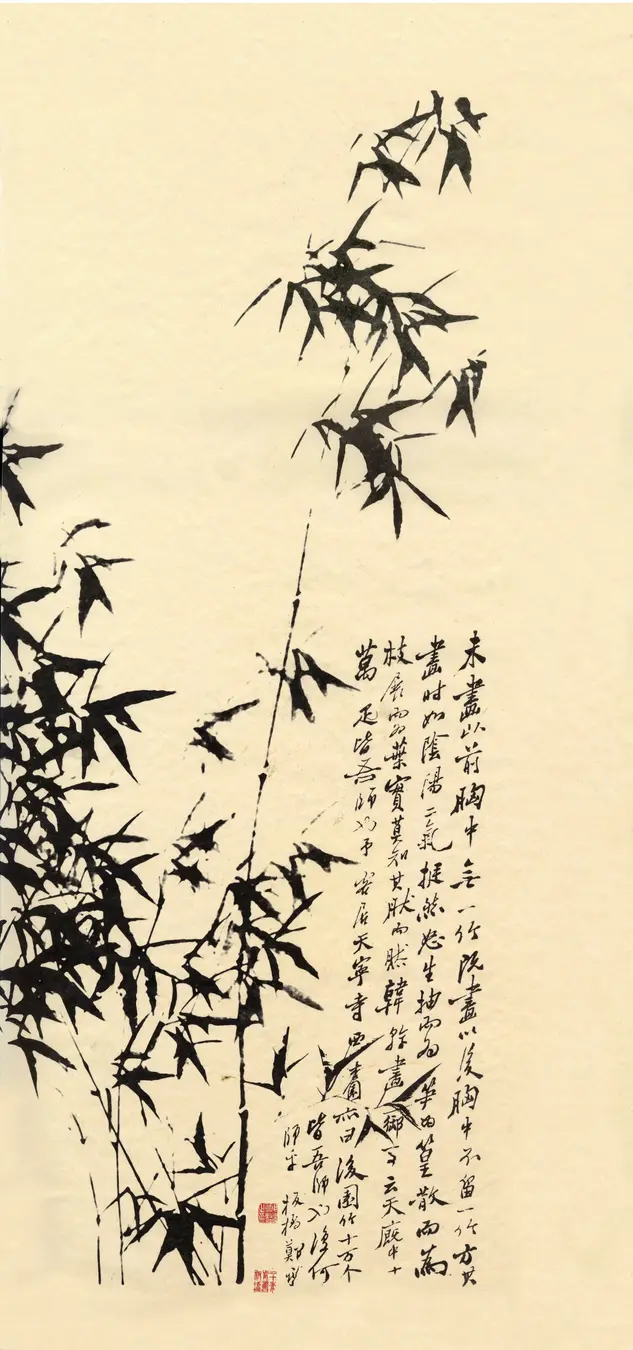 未畫以前胸中無一竹既畫以後胸中不留一竹方其
畫時如陰陽二氣挺然怒生抽而為筍為篁散而為
枝展而為葉實莫知其然而然韓幹畫御馬云天廐中十
萬疋皆吾師也予客居天寧寺西齋亦曰後園竹十万个
皆吾師也復何
師乎 板橋鄭燮